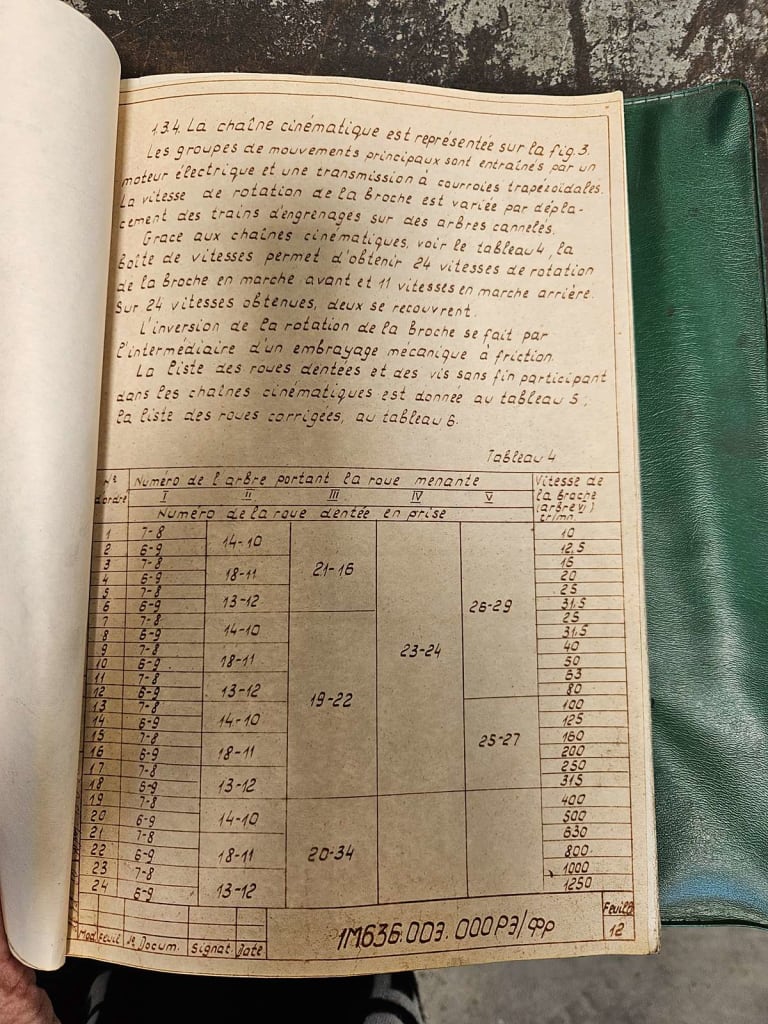 1.3.4. La chaîne cinématique est représentée sur la fig.3.
Les groupes de mouvements principaux sont entraînés par un
moteur électrique et une transmission à courroies trapézoidales.
La vitesse de rotation de la broche est variée par dépla-
cement des trains d'engrenages sur des arbres cannelés.
Grace aux chaînes cinématiques, voir le tableau 4, la
boîte de vitesses permet d'obtenir 24 vitesses de rotation
de la broche en marche avant et 11 vitesses en marche arrière.
Sur 24 vitesses obtenues, deux se recouvrent.
L'inversion de la rotation de la broche se fait par
l'intermédiaire d'un embrayage mécanique à friction.
La liste des roues dentées et des vis sans fin participant
dans les chaînes cinématiques est donnée au tableau 5;
la liste des roues corrigées, au tableau 6.
Tableau 4
N° d'ordre Numéro de l'arbre portant la roue menante Vitesse de la broche (arbre VI) tr/mn.
I II III IV V
Numéro de la roue dentée en prise
1 7-8 14-10 21-16 23-24 26-29 10
2 6-9 12,5
3 7-8 18-11 16
4 6-9 20
5 7-8 13-12 25
6 6-9 31,5
7 7-8 14-10 19-22 25
8 6-9 31,5
9 7-8 18-11 40
10 6-9 50
11 7-8 13-12 63
12 6-9 80
13 7-8 14-10 25-27 100
14 6-9 125
15 7-8 18-11 160
16 6-9 200
17 7-8 13-12 250
18 6-9 315
19 7-8 14-10 20-34 400
20 6-9 500
21 7-8 18-11 630
22 6-9 800
23 7-8 13-12 1000
24 6-9 1250
Mod Feuil № Docum. Signat. Date
1М636.00Э.000РЭ/ФР
Feuille
12